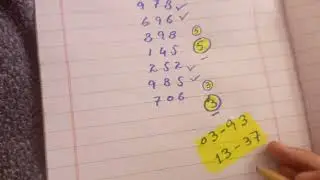 978 ✓
696 ✓
898 5
145 5
252 ✓
985 ✓ 3
706 3
03-93
13-37